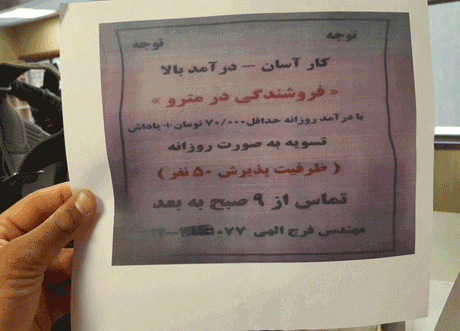 توجه توجه
کار آسان – درآمد بالا
« فروشندگی در مترو »
با درآمد روزانه حداقل ۷۰/۰۰۰ تومان + پاداش
تسویه به صورت روزانه
( ظرفیت پذیرش ۵۰ نفر )
تماس از ۹ صبح به بعد
مهندس فرج الهی ۱۰۷۷